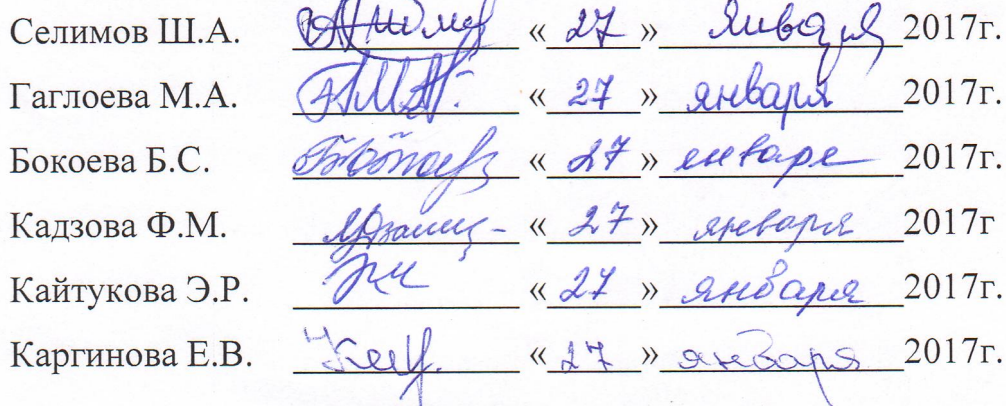 Селимов Ш.А. «27» января 2017г.
Гаглоева М.А. «27» января 2017г.
Бокоева Б.С. «27» января 2017г.
Кадзова Ф.М. «27» января 2017г
Кайтукова Э.Р. «27» января 2017г.
Каргинова Е.В. «27» января 2017г.